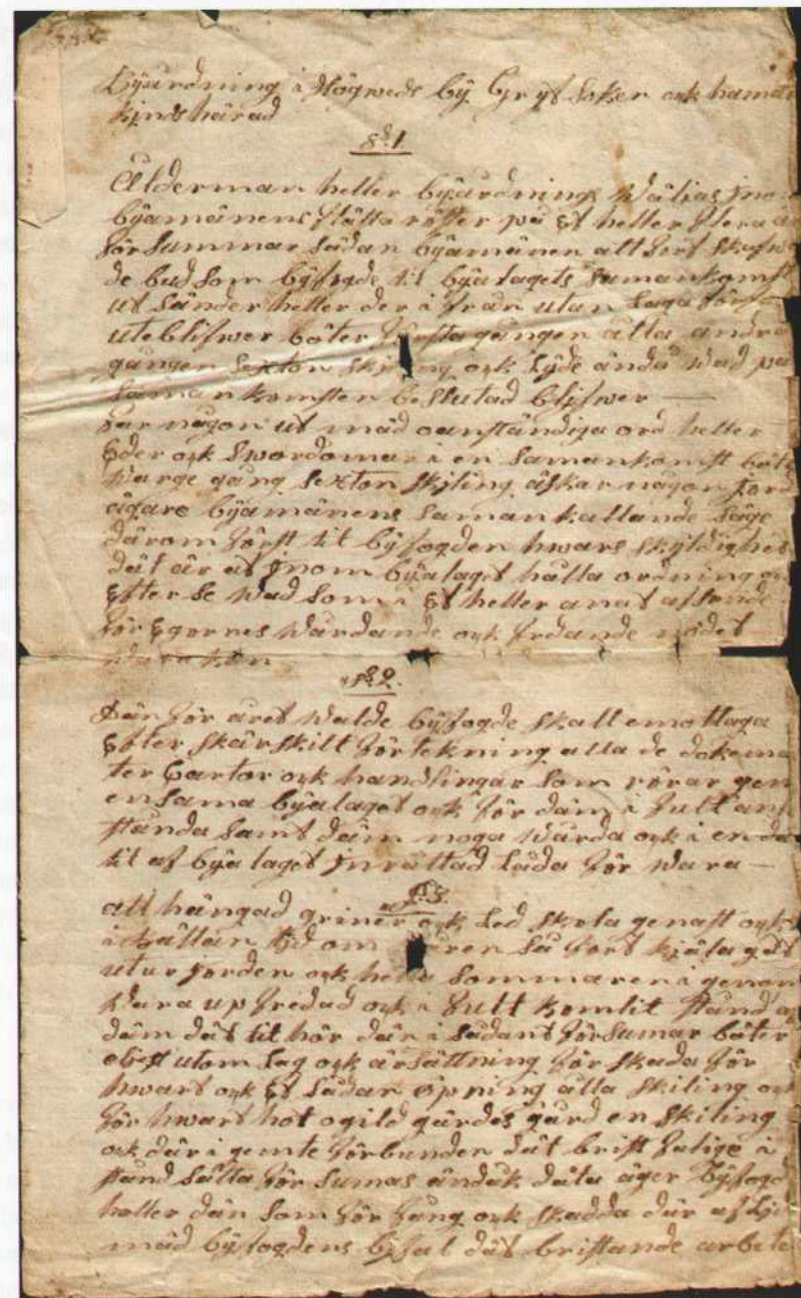 Byurdning i Högweds by Gryt Soken ock hamar
kindshärad
§§.1
Ålderman heller byurdnings Wäljas jno
byamänens slätta röster på Et heller flera år
försummar sådan byamänen att fort
de bud som byfogde til byalagets Samankomst
ut Sänder heller der i från utan Laga
uteblifwer böter fursta gången åtta andra
gången Sexton skjling ock Lyde ändå Wad på
Samankomsten beslutad blifwer —
far någon ut mäd oanständiga ord heller
Eder ock Swordomar i en Samankomst böte
Warge gång Sexton skjling äskar någon jord
ägare byamänens Samankallande Säge
därom först til byfogden hwars skyldighet
dät är at jnom byalaget hålla ordning
Efter Se Wad som i Et heller anat afseende
för Egornes Wårdande ock fredande nödet
Wara kan
§§.2.
Dän för åred Walde byfogde skall emottaga
Efter skärskilt förtekning alla de dokema
ter Cartor ock handlingar som rörar gen
ensama byalaget ock för däm i fult an
stånda Samt däm noga Wårda ock i en
til af byalaget jnrättad Låda för Wara —
§.3.
all hängad griner ock Led skola genast ock
i tid om Wåren Så fort kjäla gåt
utur jorden ock hella Sommaren igenom
Wara up fredad ock i fult komlit stånd
däm dät til hör där i Sådant försumar böter
utom Lag ock ärsättning för skada för
hwart ock Et Sådan öpning åtta skiling ock
för hwart hot ogild gärdes gård en skiling
ock där i gemte förbunden dät brist fulige i
stånd Sätta för Sumas ändåk däta äger byfogd
heller dän Som för fång ock skadda där af
mäd byfogdens bifal dät bristande arbete